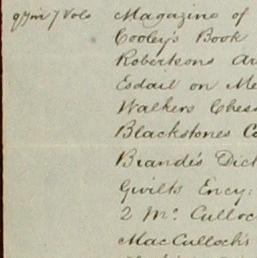 Magazine of
Cooley's Book
Robertsons
Esdail on Me
Walkers Chess
Blackstones Co
Brande's Dict
Gwilts Ency:
2 Mc. Culloc
MacCulloch's